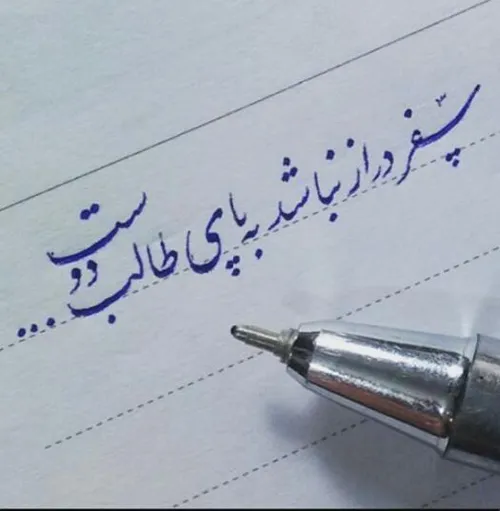 سفر دراز نباشد به پای طالب دوست...